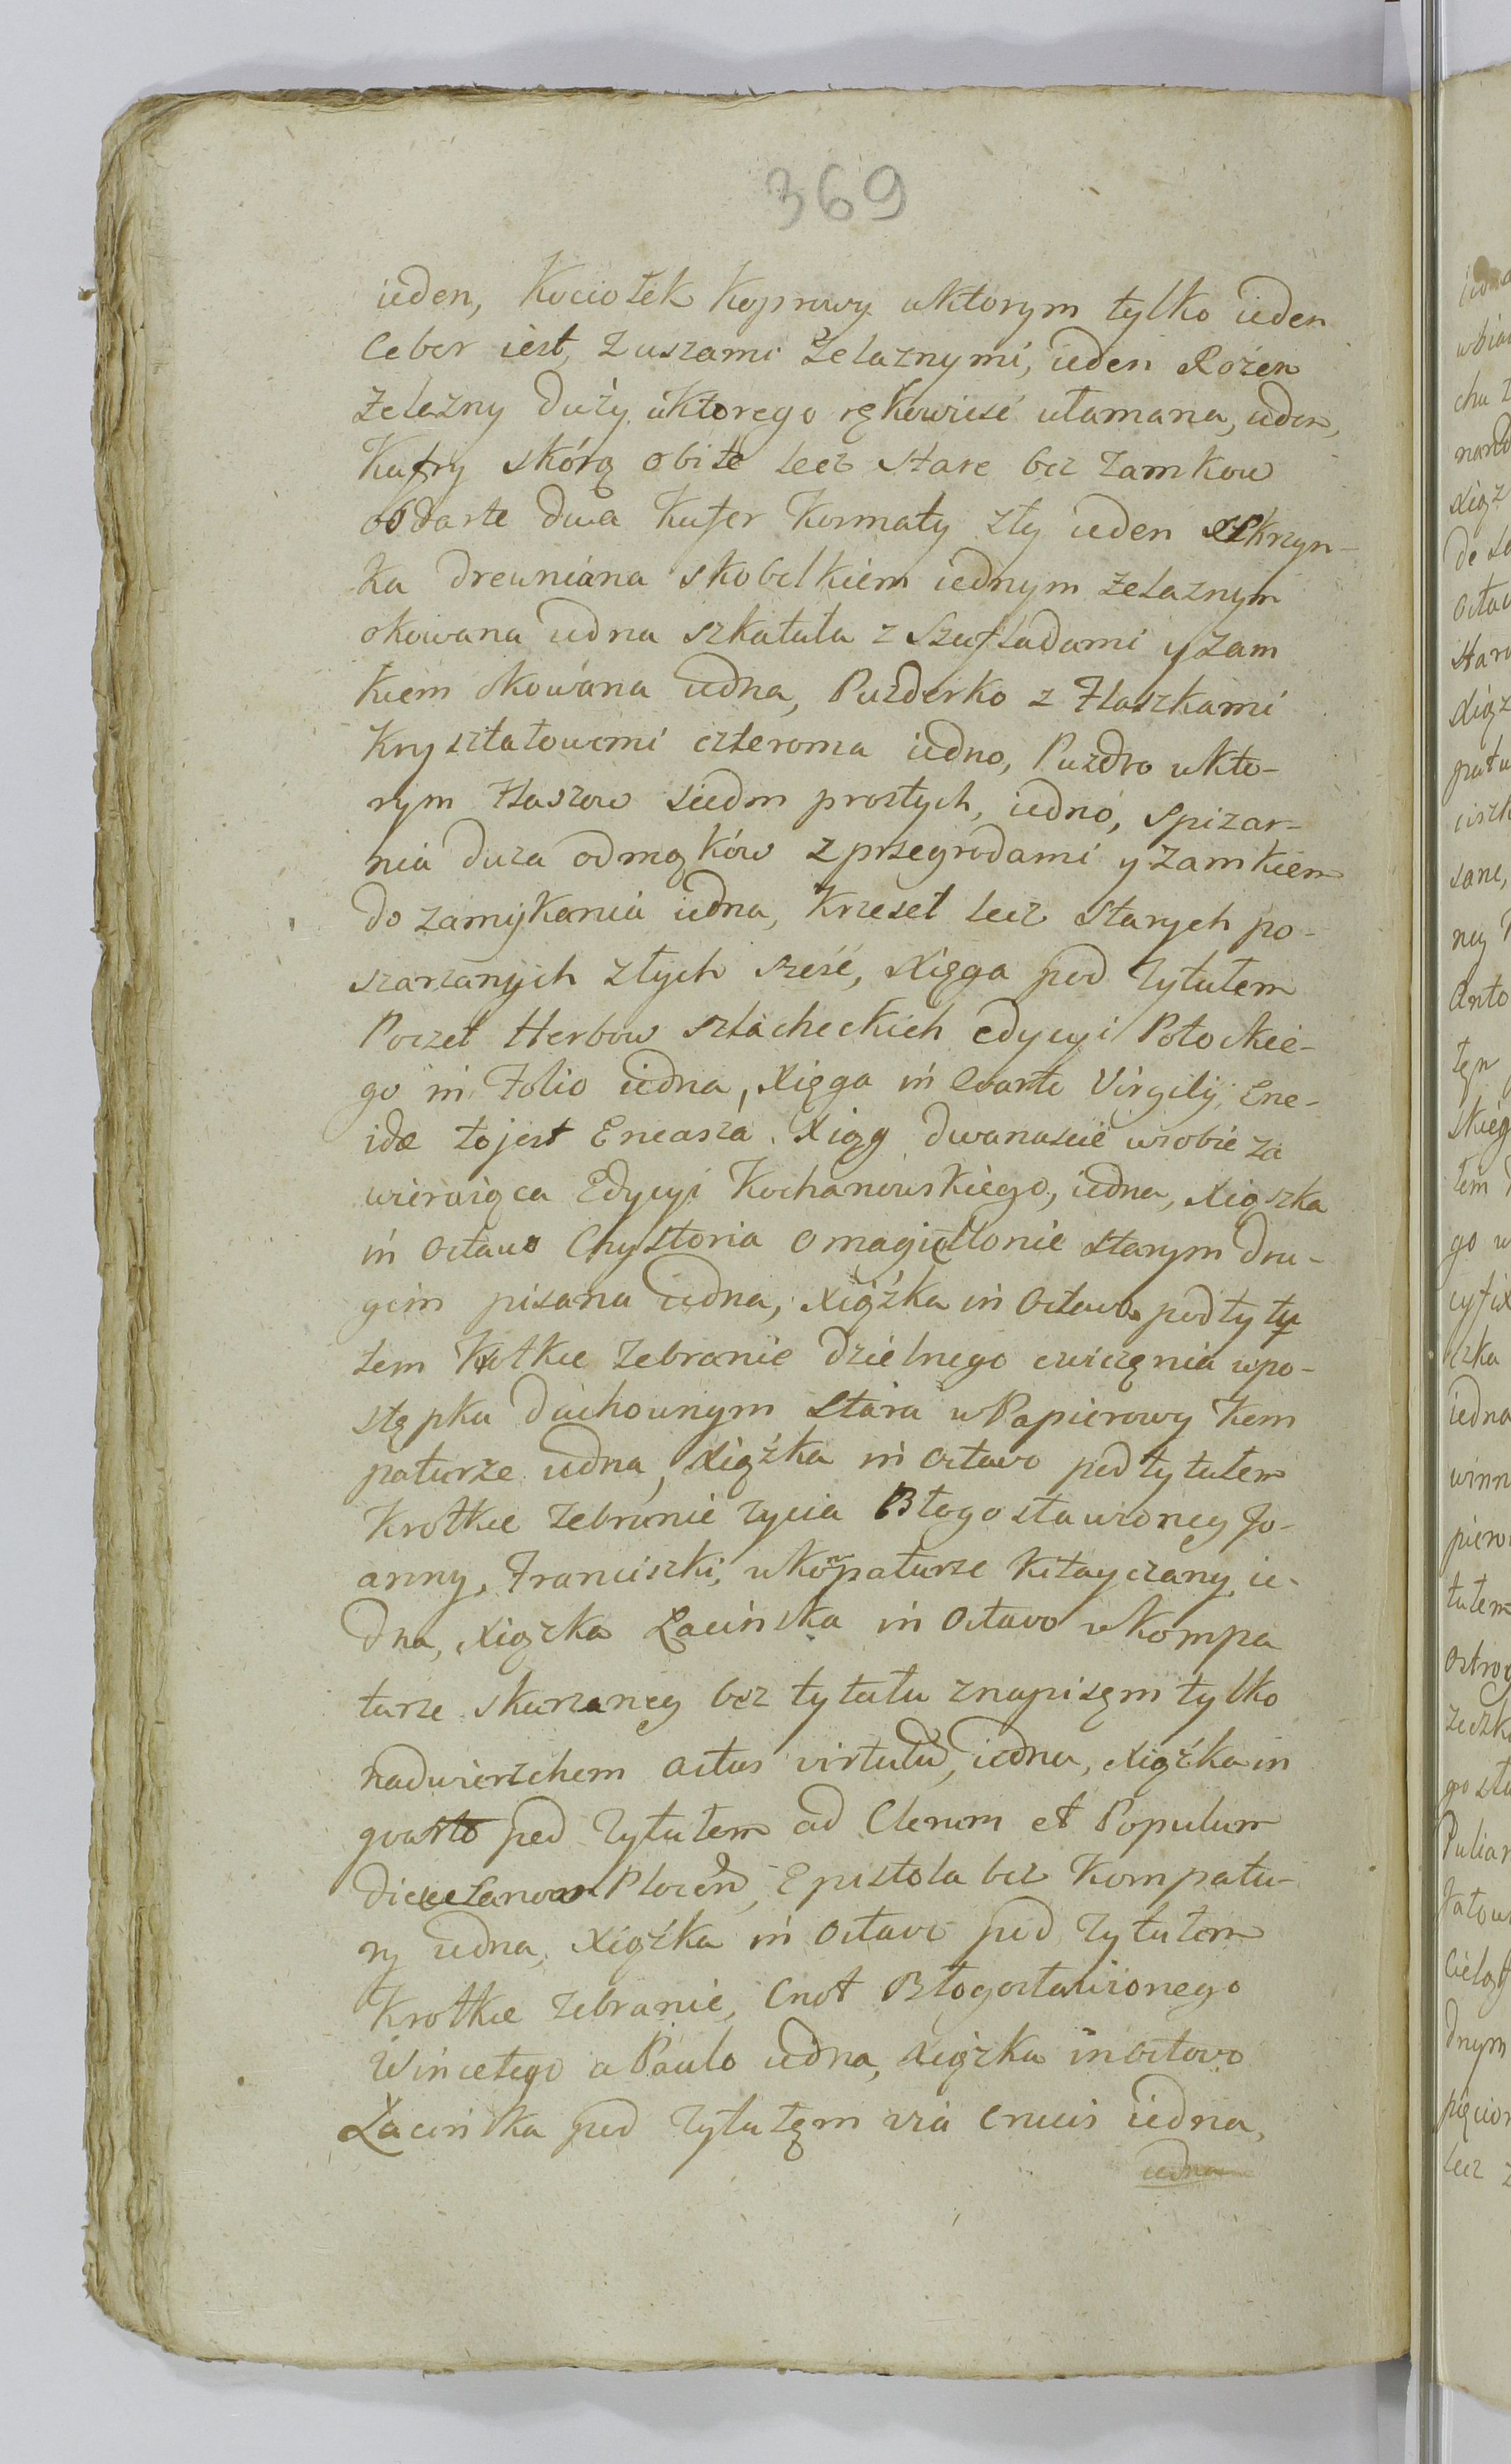 369
ieden, Kociołek Koprowy wktorym tylko ieden
Ceber iest, zuszami Żelaznymi, ieden Rożen
żelazny duży uktorego rękowieść ułamana, ieden,
Kufry skórą obite lecz stare bez zamkow
obdarte dwa Kufer Kosmaty zły ieden Skrzyn-
ka drewniana skobelkiem iednym żelaznym
okowana iedna szkatuła z Szufladami y zam
kiem okowana iedna, Puzderko z Flaszkami
Kryształowemi czteroma iedno, Puzdro wkto-
rym Flaszow siedm prostych, iedno, Spizar-
nia duza odmąków z przegrodami y zamkiem
do zamykania iedna, Krzeseł lecz starych po-
szarzanych złych sześć, Xięga pod Tytułem
Poczet Herbow szlacheckich edycyi Potockie-
go in Folio iedna, Xięga in Quarto Virgilij, Ene-
idæ to jest Eneasza. Xiąg dwanascie wsobie za
wieraiąca Edycyi Kochanowskiego, iedna, Xiąszka
in Octavo Chystoria o magielonie starym dru-
giem pisana iedna, Xiążka in Octavo pod tytu
łem Krotkie zebranie dzielnego cwiczęnia wpo-
stępku duchownym stara w Papierowy kom
paturze iedna, Xiążka in Octavo pod tytułem
Krotkie zebranie życia Błogosławioney Jo-
anny, Franciszki, wkompaturze kitayczany ie-
dna, Xiążka Łacińska in Octavo wkompa
turze skurzaney bez tytułu znapisęm tylko
nadwierzchem actus virtutū, iedna, Xiążka in
gvarto pod Tytułem ad Clerum et Populum
Epistola bez Kompatu-
ry iedna, Xiążka in Octavo pod Tytułem
Krotkie zebranie, Cnot Błogosławionego
Wincetego a Paulo iedna, Xiążka in octavo
Łacińska pod Tytułęm via Crucis iedna,
iedna